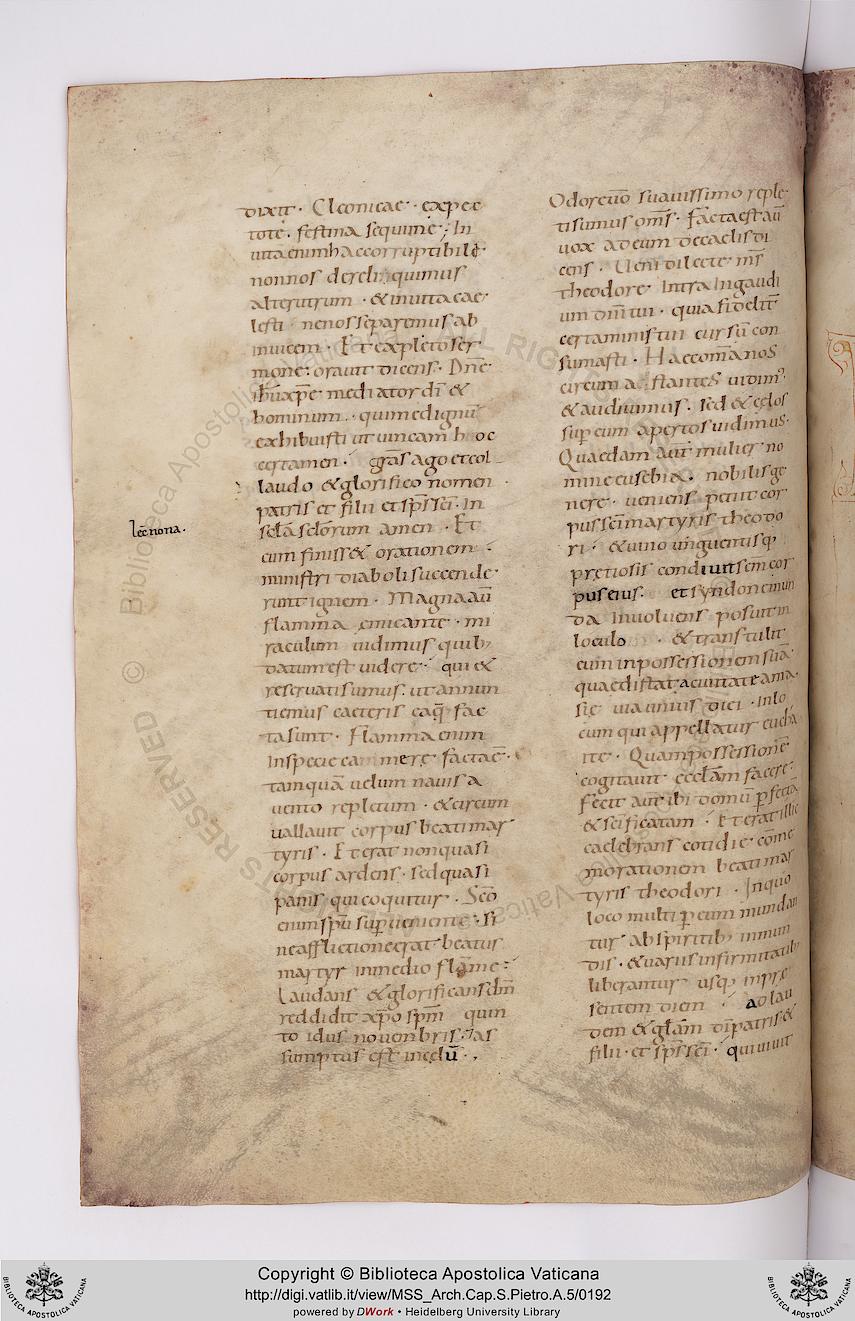 dixit · Cleonicae · expec
tote · festina sequime · In
uita enim hac corruptibile ·
non nos derelinquimus
alterutrum · & in uita cae
lesti · ne nos separemus ab
inuicem · Et expleto ser
mone · orauit dicens · Dn̄e
ih̄u xp̄e mediator dī &
hominum · qui me dignū
exhibuisti ut uincam hoc
certamen · gr̄as ago et col
laudo & glorifico nomen
patris et filii et sp̄s sc̄i · In
sc̄la sc̄lorum amen · Et
cum finiss& orationem ·
ministri diaboli succende
runt ignem · Magna aū
flamma emicante · mi
raculum uidimus quib;
datum est uidere · qui &
reseruati sumus · ut annun
tiemus caeteris eaq̄ fac
ta sunt · Flamma enim
In specie cammere factae ·
tamquā uelum nauis a
uento repletum · & circum
uallauit corpus beati mar
tyris · Et erat non quasi
corpus ardens · sed quasi
panis qui coquitur · Sc̄o
enim sp̄u sup̄ueniente · si
ne afflictione erat beatus
martyr in medio flāme ·
Laudans & glorificans dm̄
reddidit xp̄o sp̄m quin
to idus nouenbris · as
sumptus est in cęlū · ,
lec̄ nona ·
Odore uō suauissimo reple
ti sumus om̄s · facta est aū
uox ad eum de caelis di
cens · Ueni dilecte m̄s
theodore · Intra In gaudi
um dn̄i tui · quia fidelit̄
certaminis tui cursū con
sumasti · Haec om̄a nos
circum astantes uidim ·
& audiuimus · sed & cęlos
sup̄ eum apertos uidimus ·
Quaedam aūt mulier no
mine eusebia · nobilis ge
nere · ueniens petiit cor
pus sc̄i martyris theodo
ri · & uino unguentisq;
prętiosis condiuit sc̄m cor
pus eius · et syndone mun
da inuoluens posuit in
loculo · & transtulit
eum in possessionem suā
quae distat a ciuitate ama
sie uia unius diei · In lo
cum qui appellatur eucha
ite · Quam possessionē
cogitauit ecclām facere ·
fecit aūt ibi domū p̄fectā
& sc̄ificatam · Et erat illic
caelebrans cotidie cōme
morationem beati mar
tyris theodori · In quo
loco multi p̄ eum mundan
tur ab spiritib; inmun
dis · & uariis infirmitatib;
liberantur usq; in prę
sentem diem · ad lau
dem & glām dī patris &
filii · et sp̄s sc̄i · qui uiuit
Copyright © Biblioteca Apostolica Vaticana
http://digi.vatlib.it/view/MSS_Arch.Cap.S.Pietro.A.5/0192
powered by DWork • Heidelberg University Library